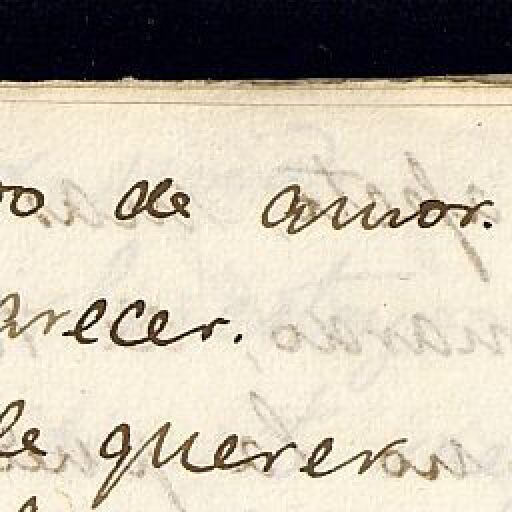 o de amor.
arecer.
le querer